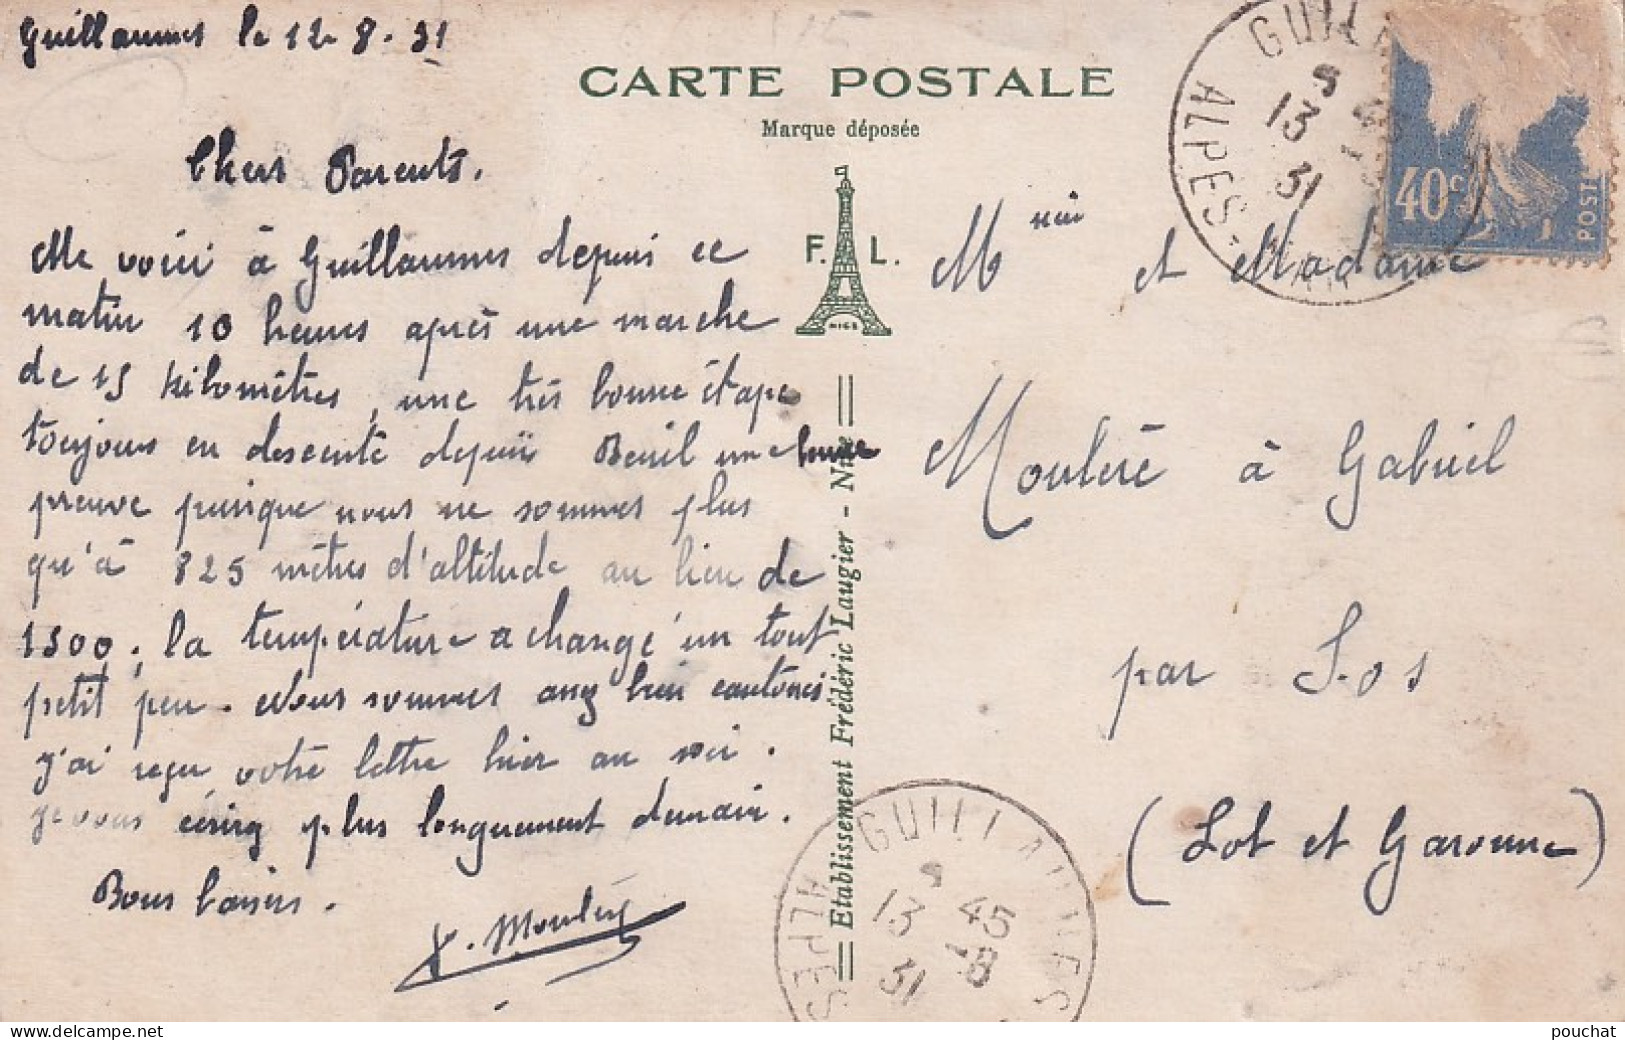 Guillaumes le 12-8-31
CARTE POSTALE
Marque déposée
Chers Parents.
Me voici à Guillaumes depuis ce
matin 10 heures après une marche
de 15 kilomètres, une très bonne étape
toujours en descente depuis Beuil une
preuve puisque nous ne sommes plus
qu'à 825 mètres d'altitude au lieu de
1500. la température a changé un tout
petit peu. Nous sommes assez bien cantonés
j'ai reçu votre lettre hier au soir.
je vous écrirez plus longuement demain.
Bons baisers.
Mouleré
F. L.
NICE
Etablissement Frédéric Laugier - Nice
GUILL
ALPES-
13 45
31
40c
POST
M et Madame
Mouleré à Gabriel
par Sos
(Lot et Garonne)
GUILLAUMES
ALPES
13 45
31 -8
pouchat